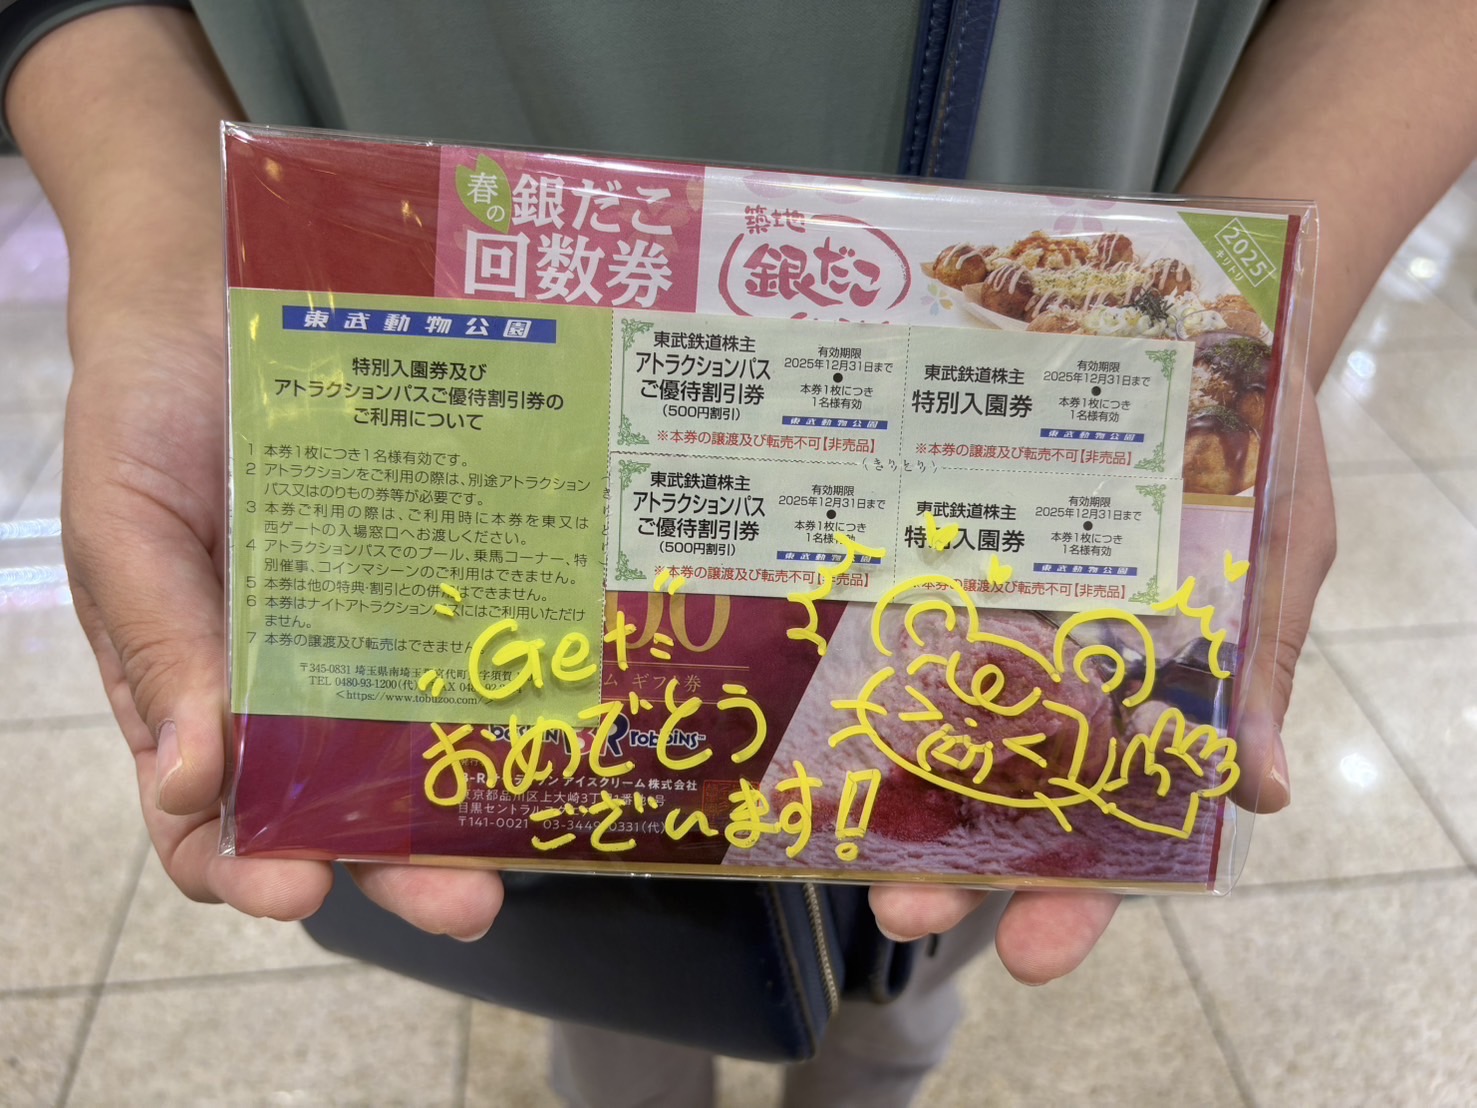 春の
銀だこ
回数券
築地
銀だこ
2025
キリトリ
東武動物公園
特別入園券及び
アトラクションパスご優待割引券の
ご利用について
1 本券1枚につき1名様有効です。
2 アトラクションをご利用の際は、別途アトラクション
パス又はのりもの券等が必要です。
3 本券ご利用の際は、ご利用時に本券を東又は
西ゲートの入場窓口へお渡しください。
4 アトラクションパスでのプール、乗馬コーナー、特
別催事、コインマシーンのご利用はできません。
5 本券は他の特典・割引との併用はできません。
6 本券はナイトアトラクションパスにはご利用いただけ
ません。
7 本券の譲渡及び転売はできません
〒345-0831 埼玉県南埼玉 宮代町 字須賀
TEL 0480-93-1200(代) FAX
<https://www.tobuzoo.com/>
東武鉄道株主
アトラクションパス
ご優待割引券
(500円割引)
有効期限
2025年12月31日まで
●
本券1枚につき
1名様有効
東武動物公園
※本券の譲渡及び転売不可【非売品】
東武鉄道株主
特別入園券
有効期限
2025年12月31日まで
●
本券1枚につき
1名様有効
東武動物公園
※本券の譲渡及び転売不可【非売品】
(きりとり)
東武鉄道株主
アトラクションパス
ご優待割引券
(500円割引)
有効期限
2025年12月31日まで
●
本券1枚につき
1名様有効
東武動物公園
※本券の譲渡及び転売不可【非売品】
東武鉄道株主
特別入園券
有効期限
2025年12月31日まで
●
本券1枚につき
1名様有効
東武動物公園
※本券の譲渡及び転売不可【非売品】
ム ギフト券
baskin BR robbins
アイスクリーム株式会社
東京都品川区上大崎3丁目1番
目黒セントラル
〒141-0021 03-344 0331(代)
Getだ
おめでとう
ございます!!